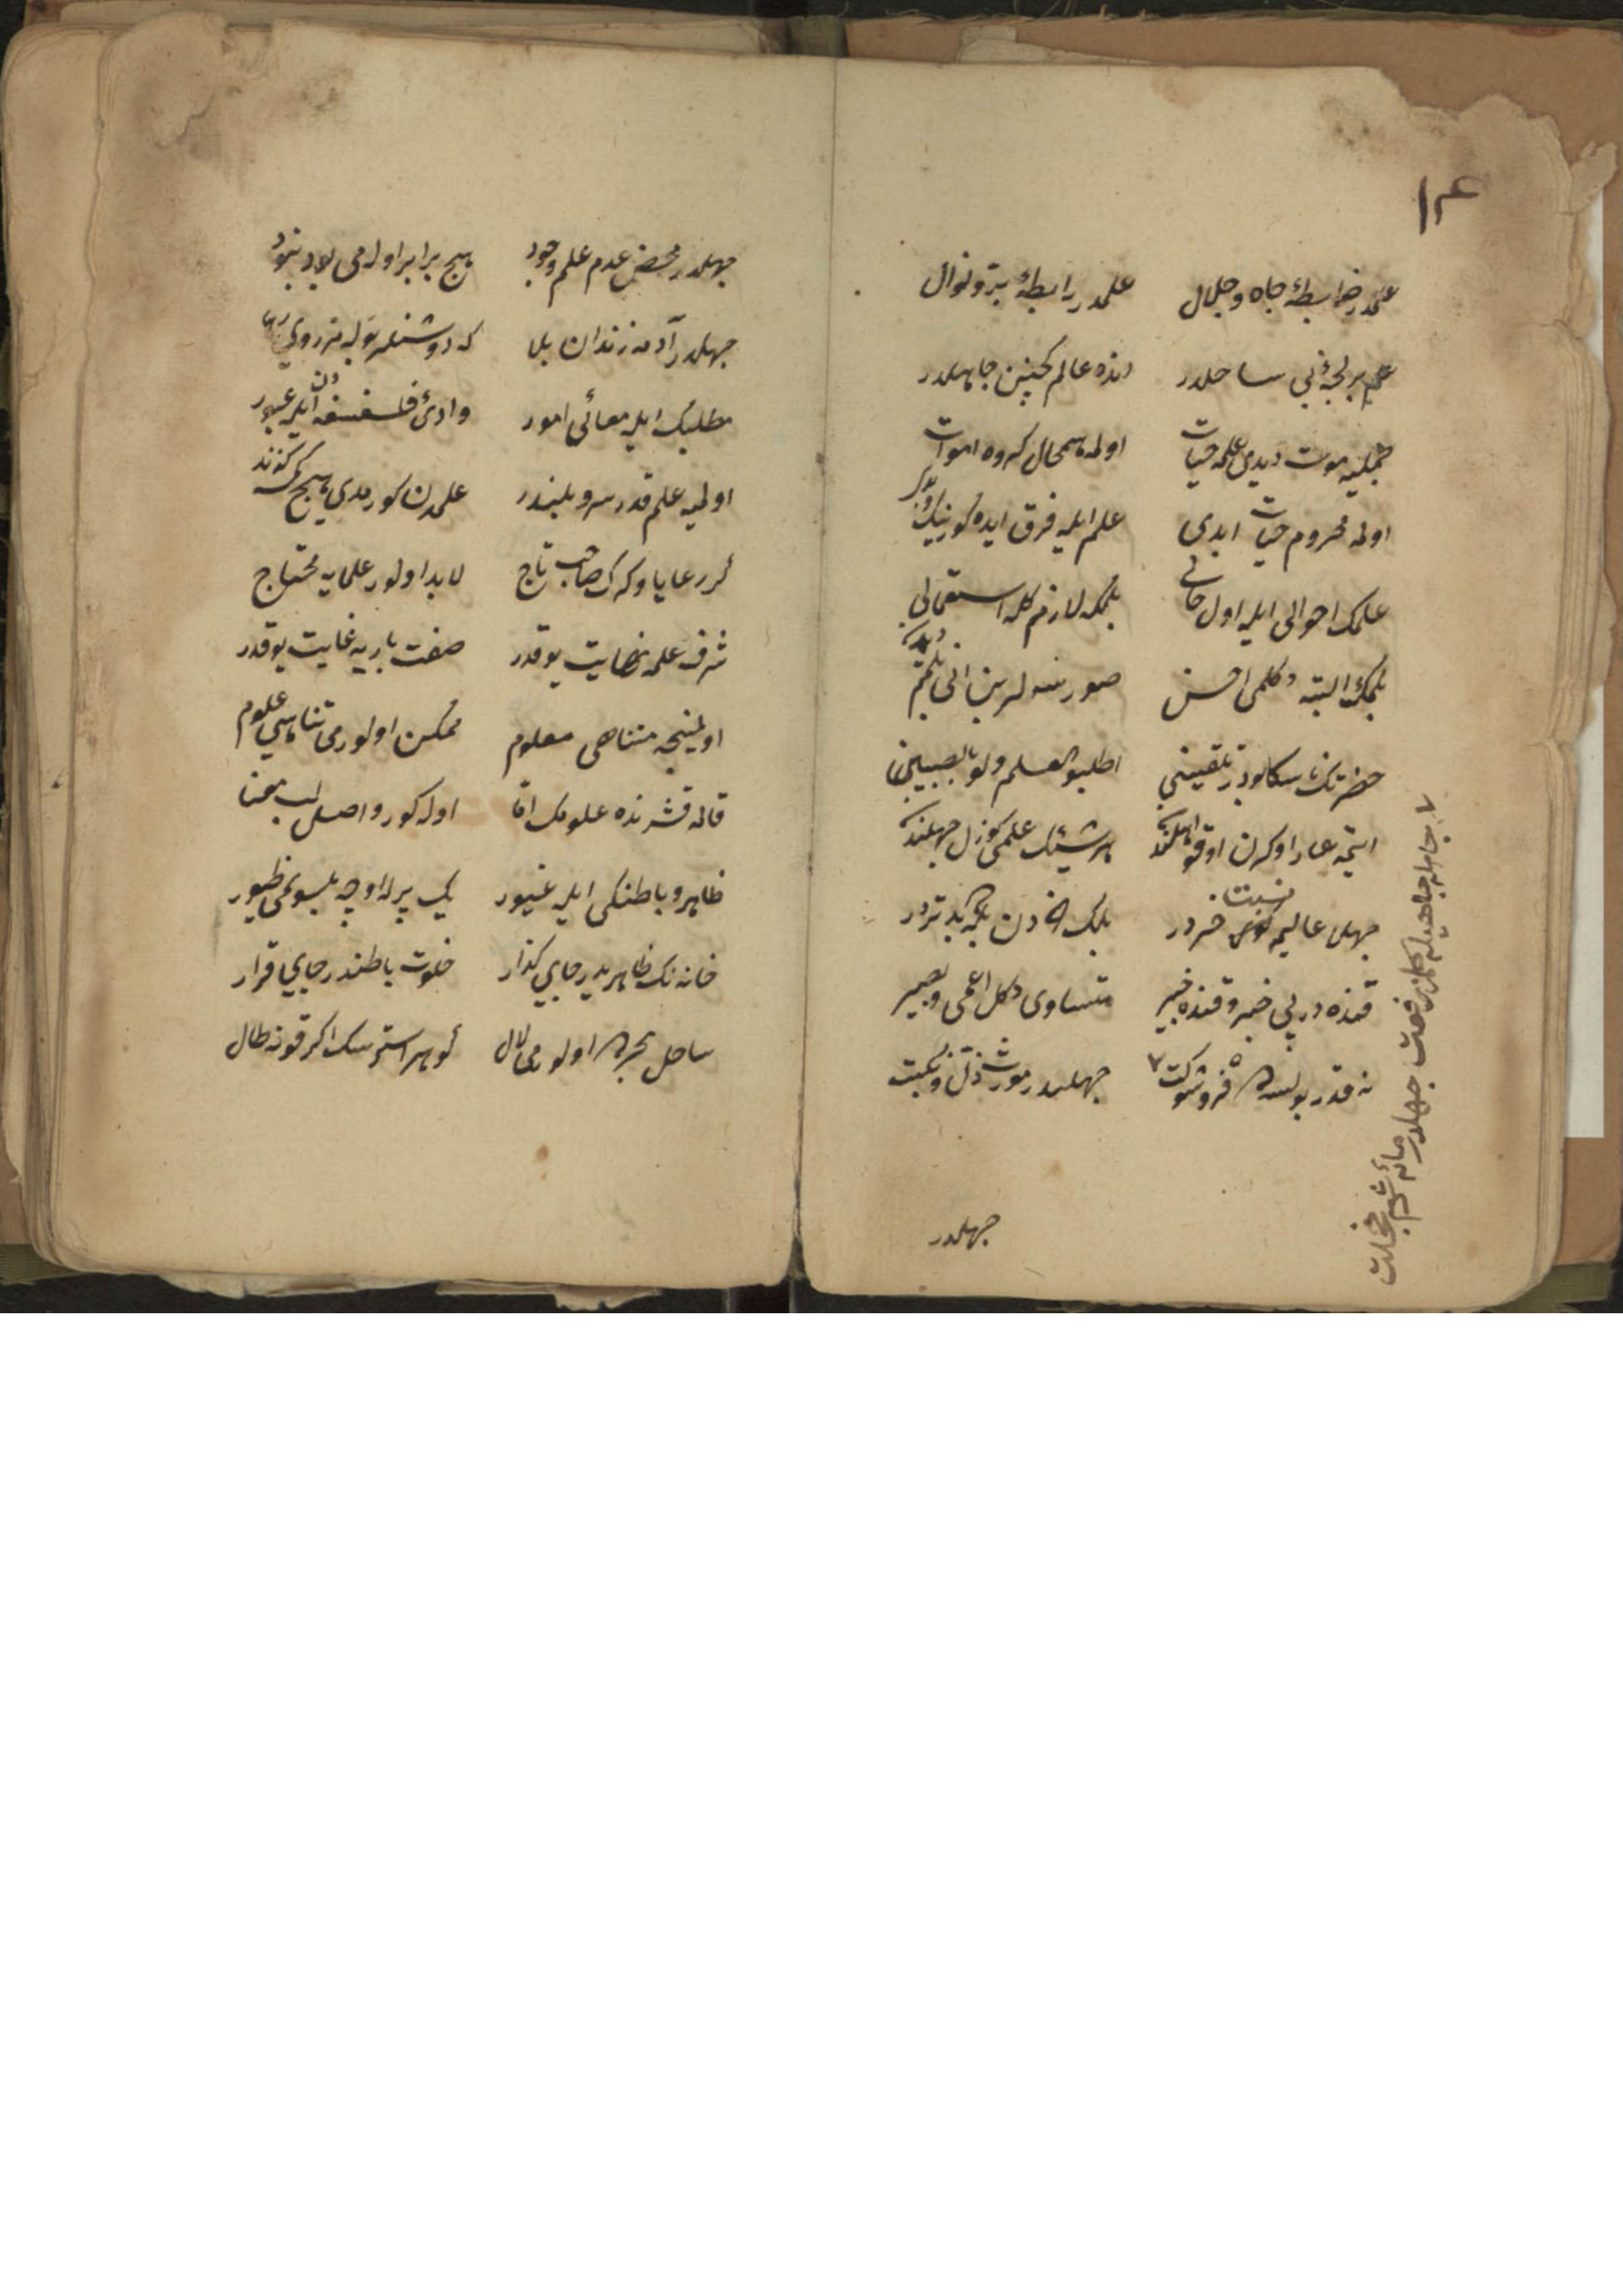 ١٣
علمدر ضابطهٔ جاه و جلال علمدر رابطهٔ بر و نوال
علم بر لجهٔ بی ساحلدر انده عالم کچینن جاهلدر
جهلیه موت دیدی علمه حیات اولمه همحال کروه اموات
اولمه محروم حیات ابدی علم ایله فرق ایده کور نیک و بدی
علمک احوالی ایله اول حالی بلمکه لازم کله استعمالی
بلمک البته دکلمی احسن صورسه لر بن انی بلمم دیمدن
حضرتک ناسکا بودر تلقینی اطلبوا العلم ولو بالصینی
ایتمه عار اوکرن اوقو اهلندن هر شیئک علمی کوزل جهلندن
جهل عالیمه نسبت خردر بلکه خردن بلکه بدتردر
قنده در بی خبر و قنده خبیر متساوی دکل اعمی و بصیر
نه قدر بولسه ده فر و شوکت ٧ جهلدر مورث ذل و نکبت
٧ جاهله جاهیله کلمز رفعت جهلدر مایهٔ شرم خجلت
جهلدر
جهلدر محض عدم علم وجود هیچ برابر اولمی بود نبود
جهلدر آدمه زندان بلا که دوشنلر بوله مز روی رها
مطلبک ایله معالی امور وادیٔ فلسفه دن ایله عبور
اولیه علم قدر سر و بلندر علمدن کورمدی هیچ کمسه کزند
کر رعایا و کرک صاحب تاج لابد اولور علمایه محتاج
شرف علمه نهایت یوقدر صفت باریه غایت یوقدر
اولمینجه متناهی معلوم ممکن اولورمی تناهی علوم
قاله قشرنده علومک اما اوله کور واصل لب معنا
ظاهر و باطنکی ایله غیور یک پر له اوجه بلسونمی طیور
خانه نک ظاهریدر جای کذار خلوت باطندر جای قرار
ساحل بحرده اولورمی لال کوهر استرسک اکر قعرنه طال